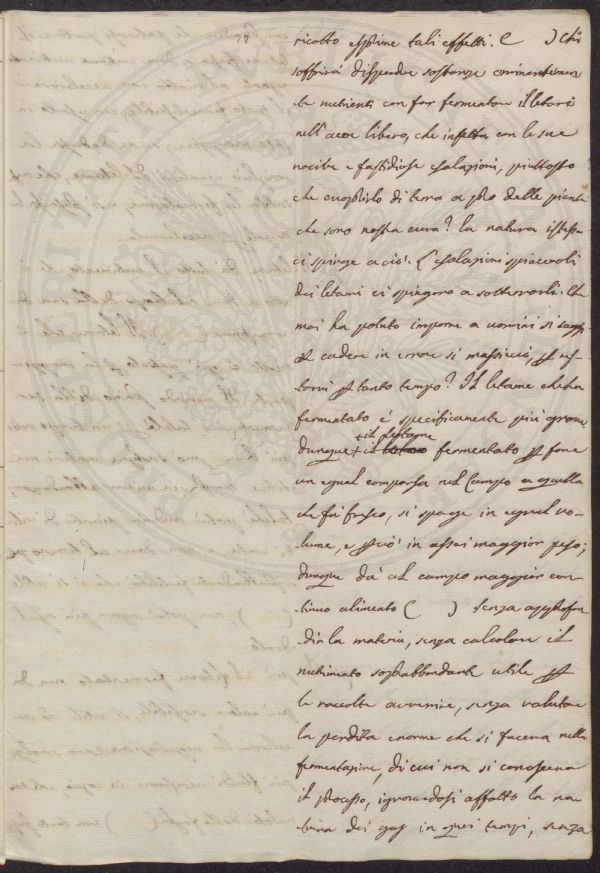 ricotto esprime tali effetti. ( ) Chi
soffrirà disperdere sostanze eminentemen
te nutrienti con far fermentare il letame
nell'aere libero, che infetta con le sue
nocive e fastidiose esalazioni, piuttosto
che cuoprirlo di terra a pro delle piante
che sono nostra cura? la natura istessa
ci spinge a ciò. L'esalazioni spiacevoli
dei letami ci spingono a sotterrarli. Che
mai ha potuto imporre a uomini si saggi
per cadere in errore si massiccio, per res-
tarvi per tanto tempo? Il letame che ha
fermentato è specificamente più grave
dunque + il fermentato per fare
+ il letame
un egual comparsa nel Campo a quella
che fa fresco, si sparge in egual vo-
lume, e perciò in assai maggior peso;
dunque dà al campo maggior con-
tinuo alimento ( ) senza approfon
dir la materia, senza calcolare il
nutrimento soprabbondante utile per
le raccolte avvenire, senza valutare
la perdita enorme che si faceva nella
fermentazione, di cui non si conosceva
il processo, ignorandosi affatto la na
tura dei gas in quei tempi, senza